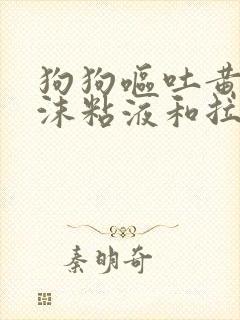 狗狗呕吐黄
沫粘液和拉
秦明奇